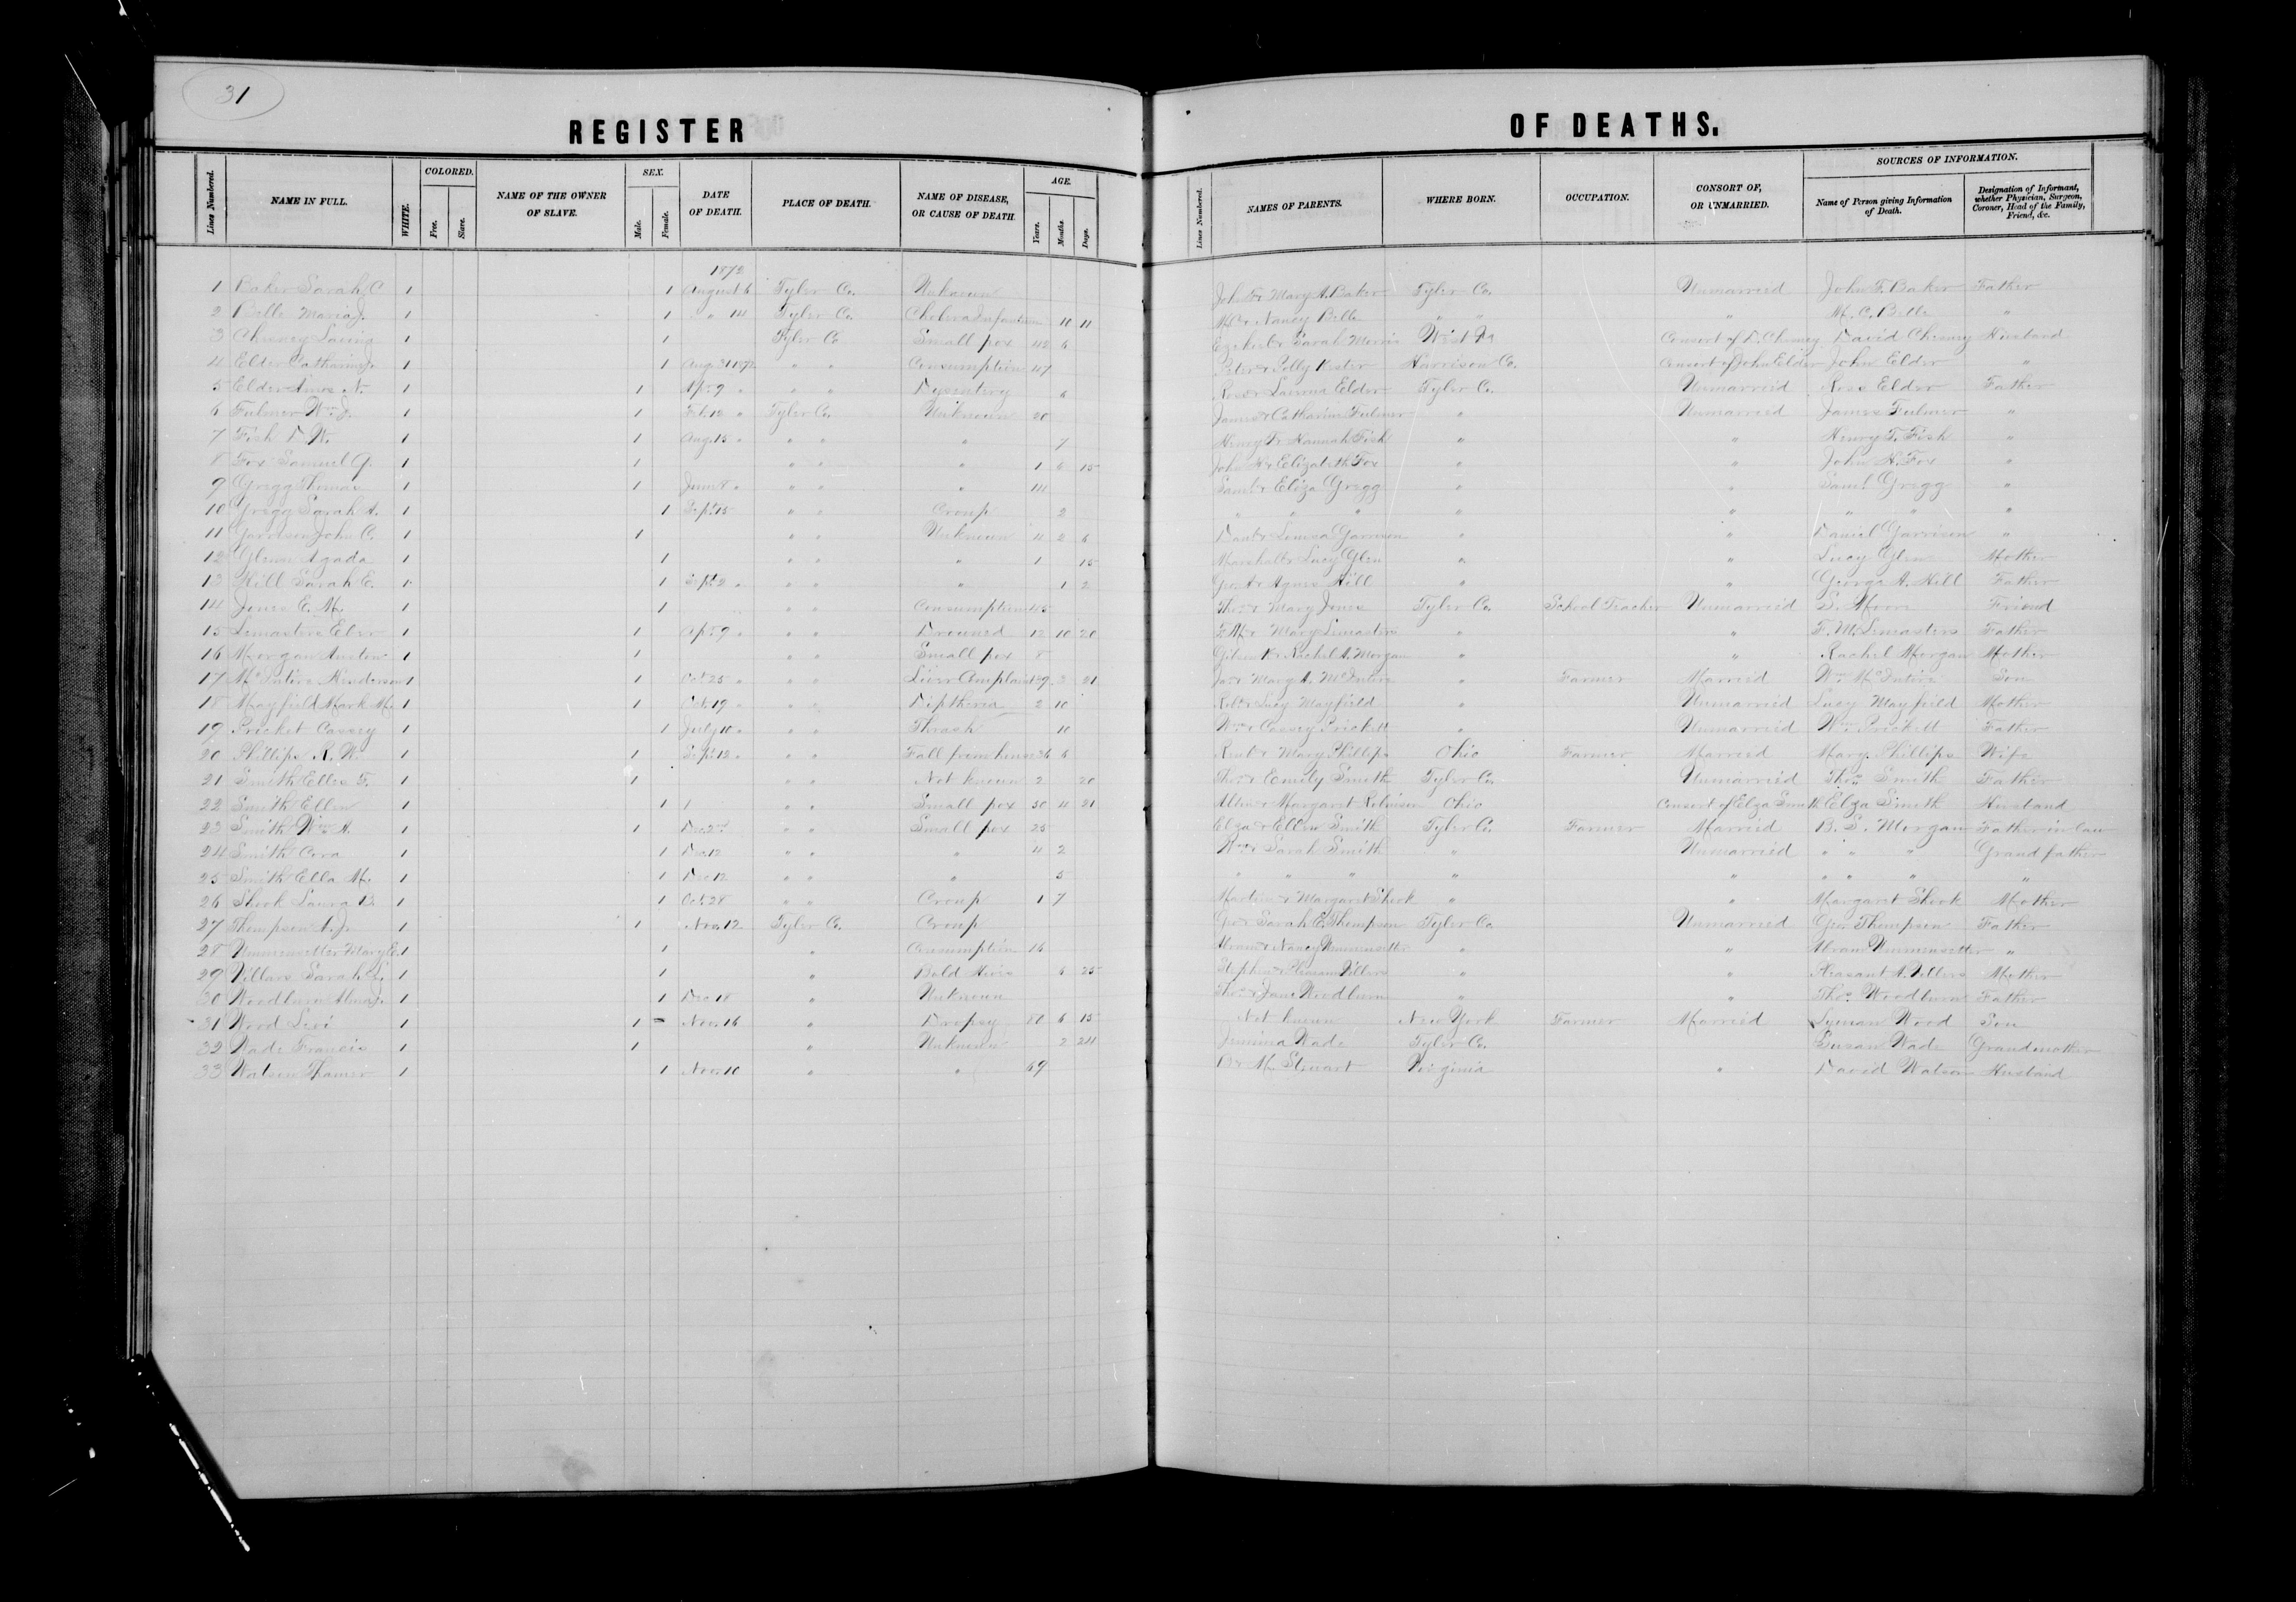 31
REGISTER OF DEATHS.
Lines Numbered. NAME IN FULL. WHITE. COLORED. Free. Slave. NAME OF THE OWNER OF SLAVE. SEX. Male. Female. DATE OF DEATH. PLACE OF DEATH. NAME OF DISEASE, OR CAUSE OF DEATH. AGE. Years. Months. Days. Lines Numbered. NAMES OF PARENTS. WHERE BORN. OCCUPATION. CONSORT OF, OR UNMARRIED. SOURCES OF INFORMATION. Name of Person giving Information of Death. Designation of Informant, whether Physician, Surgeon, Coroner, Head of the Family, Friend, &c.
1872
1 Baker Sarah C 1 1 August 6 Tyler Co. Unknown John F & Mary A. Baker Tyler Co. Unmarried John F. Baker Father
2 Bille Maria J. 1 1 " " 14 Tyler Co. Cholera Infantum 10 11 M C & Nancy Bille " " " M. C. Bille "
3 Chesney 1 1 Tyler Co Small pox 42 6 Sarah Morris West Va Consort of D. Chesney David Chesney Husband
4 Elder Catharine 1 1 Aug. 31 1872 " " Consumption 47 Peter & Polly Kester Harrison Co. Consort of John Elder John Elder "
5 Elder Amos N. 1 1 Apr. 9 " " " Dysentery 6 Ross & Elder Tyler Co. Unmarried Ross Elder Father
6 Fulmer Wm. J. 1 1 Feb. 12 " Tyler Co. Unknown 20 James & Catharine Fulmer " Unmarried James Fulmer "
7 Fish D. W. 1 1 Aug. 15 " " " " 7 Henry T & Hannah Fish " " Henry T. Fish "
8 Fox Samuel G. 1 1 " " " 1 6 15 John H & Elizabeth Fox " " John H. Fox "
9 Gregg Thomas 1 1 June 8 " " " " 14 Saml & Eliza Gregg " " Saml Gregg "
10 Gregg Sarah A. 1 1 Sept. 15 " " Croup 2 " " " " " " " "
11 Garrison John C. 1 1 " " Unknown 4 2 6 Danl & Louisa Garrison " " Daniel Garrison "
12 Glenn Agada 1 1 " " " 1 15 Marshall & Lucy Glen " " Lucy Glen Mother
13 Hill Sarah E. 1 1 Sept. 2 " " " " 1 2 Geo A & Agnes Hill " " George A. Hill Father
14 Jones E. M. 1 1 " " Consumption 45 Thos. & Mary Jones Tyler Co. School Teacher Unmarried S. Moore Friend
15 Lemasters Eber 1 1 Apr. 9 " " " Drowned 12 10 20 F. M & Mary Lemasters " " F. M. Lemasters Father
16 Morgan Austin 1 1 " " Small pox 8 Gibson K & Rachel A. Morgan " " Rachel Morgan Mother
17 McIntire Henderson 1 1 Oct. 25 " " " Liver Complaint 49 3 21 Jas & Mary A. McIntire " Farmer Married Wm. McIntire Son
18 Mayfield Mark M. 1 1 Oct. 19 " " " Diptheria 2 10 Robt & Lucy Mayfield " Unmarried Lucy Mayfield Mother
19 Pricket Cassey 1 1 July 10 " " " Thrash 10 Wm & Cassey Prickett " Unmarried Wm. Prickett Father
20 Phillips R. W. 1 1 Sept. 12 " " " Fall from horse 36 6 & Mary Phillips Ohio Farmer Married Mary Phillips Wife
21 Smith Elles F. 1 1 " " Not known 2 20 Thos. & Emily Smith Tyler Co. Unmarried Thos. Smith Father
22 Smith Ellen 1 1 1 " " Small pox 50 4 21 & Margaret Robinson Ohio Consort of Elza Smith Elza Smith Husband
23 Smith Wm. A. 1 1 Dec. 2nd " " Small pox 25 Elza & Ellen Smith Tyler Co. Farmer Married B. S. Morgan Father in law
24 Smith Cora 1 1 Dec. 12 " " " 4 2 Wm. & Sarah Smith " Unmarried " " " Grandfather
25 Smith Ella M. 1 1 Dec 12 " " " 5 " " " " " " " " "
26 Shook Laura B. 1 1 Oct. 28 " " Croup 1 7 Martin & Margaret Shook " " Margaret Shook Mother
27 Thompson A. J. 1 1 Nov. 12 Tyler Co. Croup Geo & Sarah E. Thompson Tyler Co Unmarried Geo. Thompson Father
28 Ummensetter Mary E. 1 1 " Consumption 16 Abram & Nancy Ummensetter " " Abram Ummensetter "
29 Villars Sarah 1 1 " Bold Hives 6 25 Stephen & Pleasant Villers " " Pleasant A. Villers Mother
30 Woodburn Alma J. 1 1 Dec 18 " Unknown Thos. & Jane Woodburn " " Thos. Woodburn Father
31 Wood Levi 1 1 Nov. 16 " Dropsy 80 6 15 Not known New York Farmer Married Lyman Wood Son
32 Wade Francis 1 1 " Unknown 2 24 Jemima Wade Tyler Co. Susan Wade Grandmother
33 Watson 1 1 Nov. 10 " " 69 M. Stewart Virginia " David Watson Husband